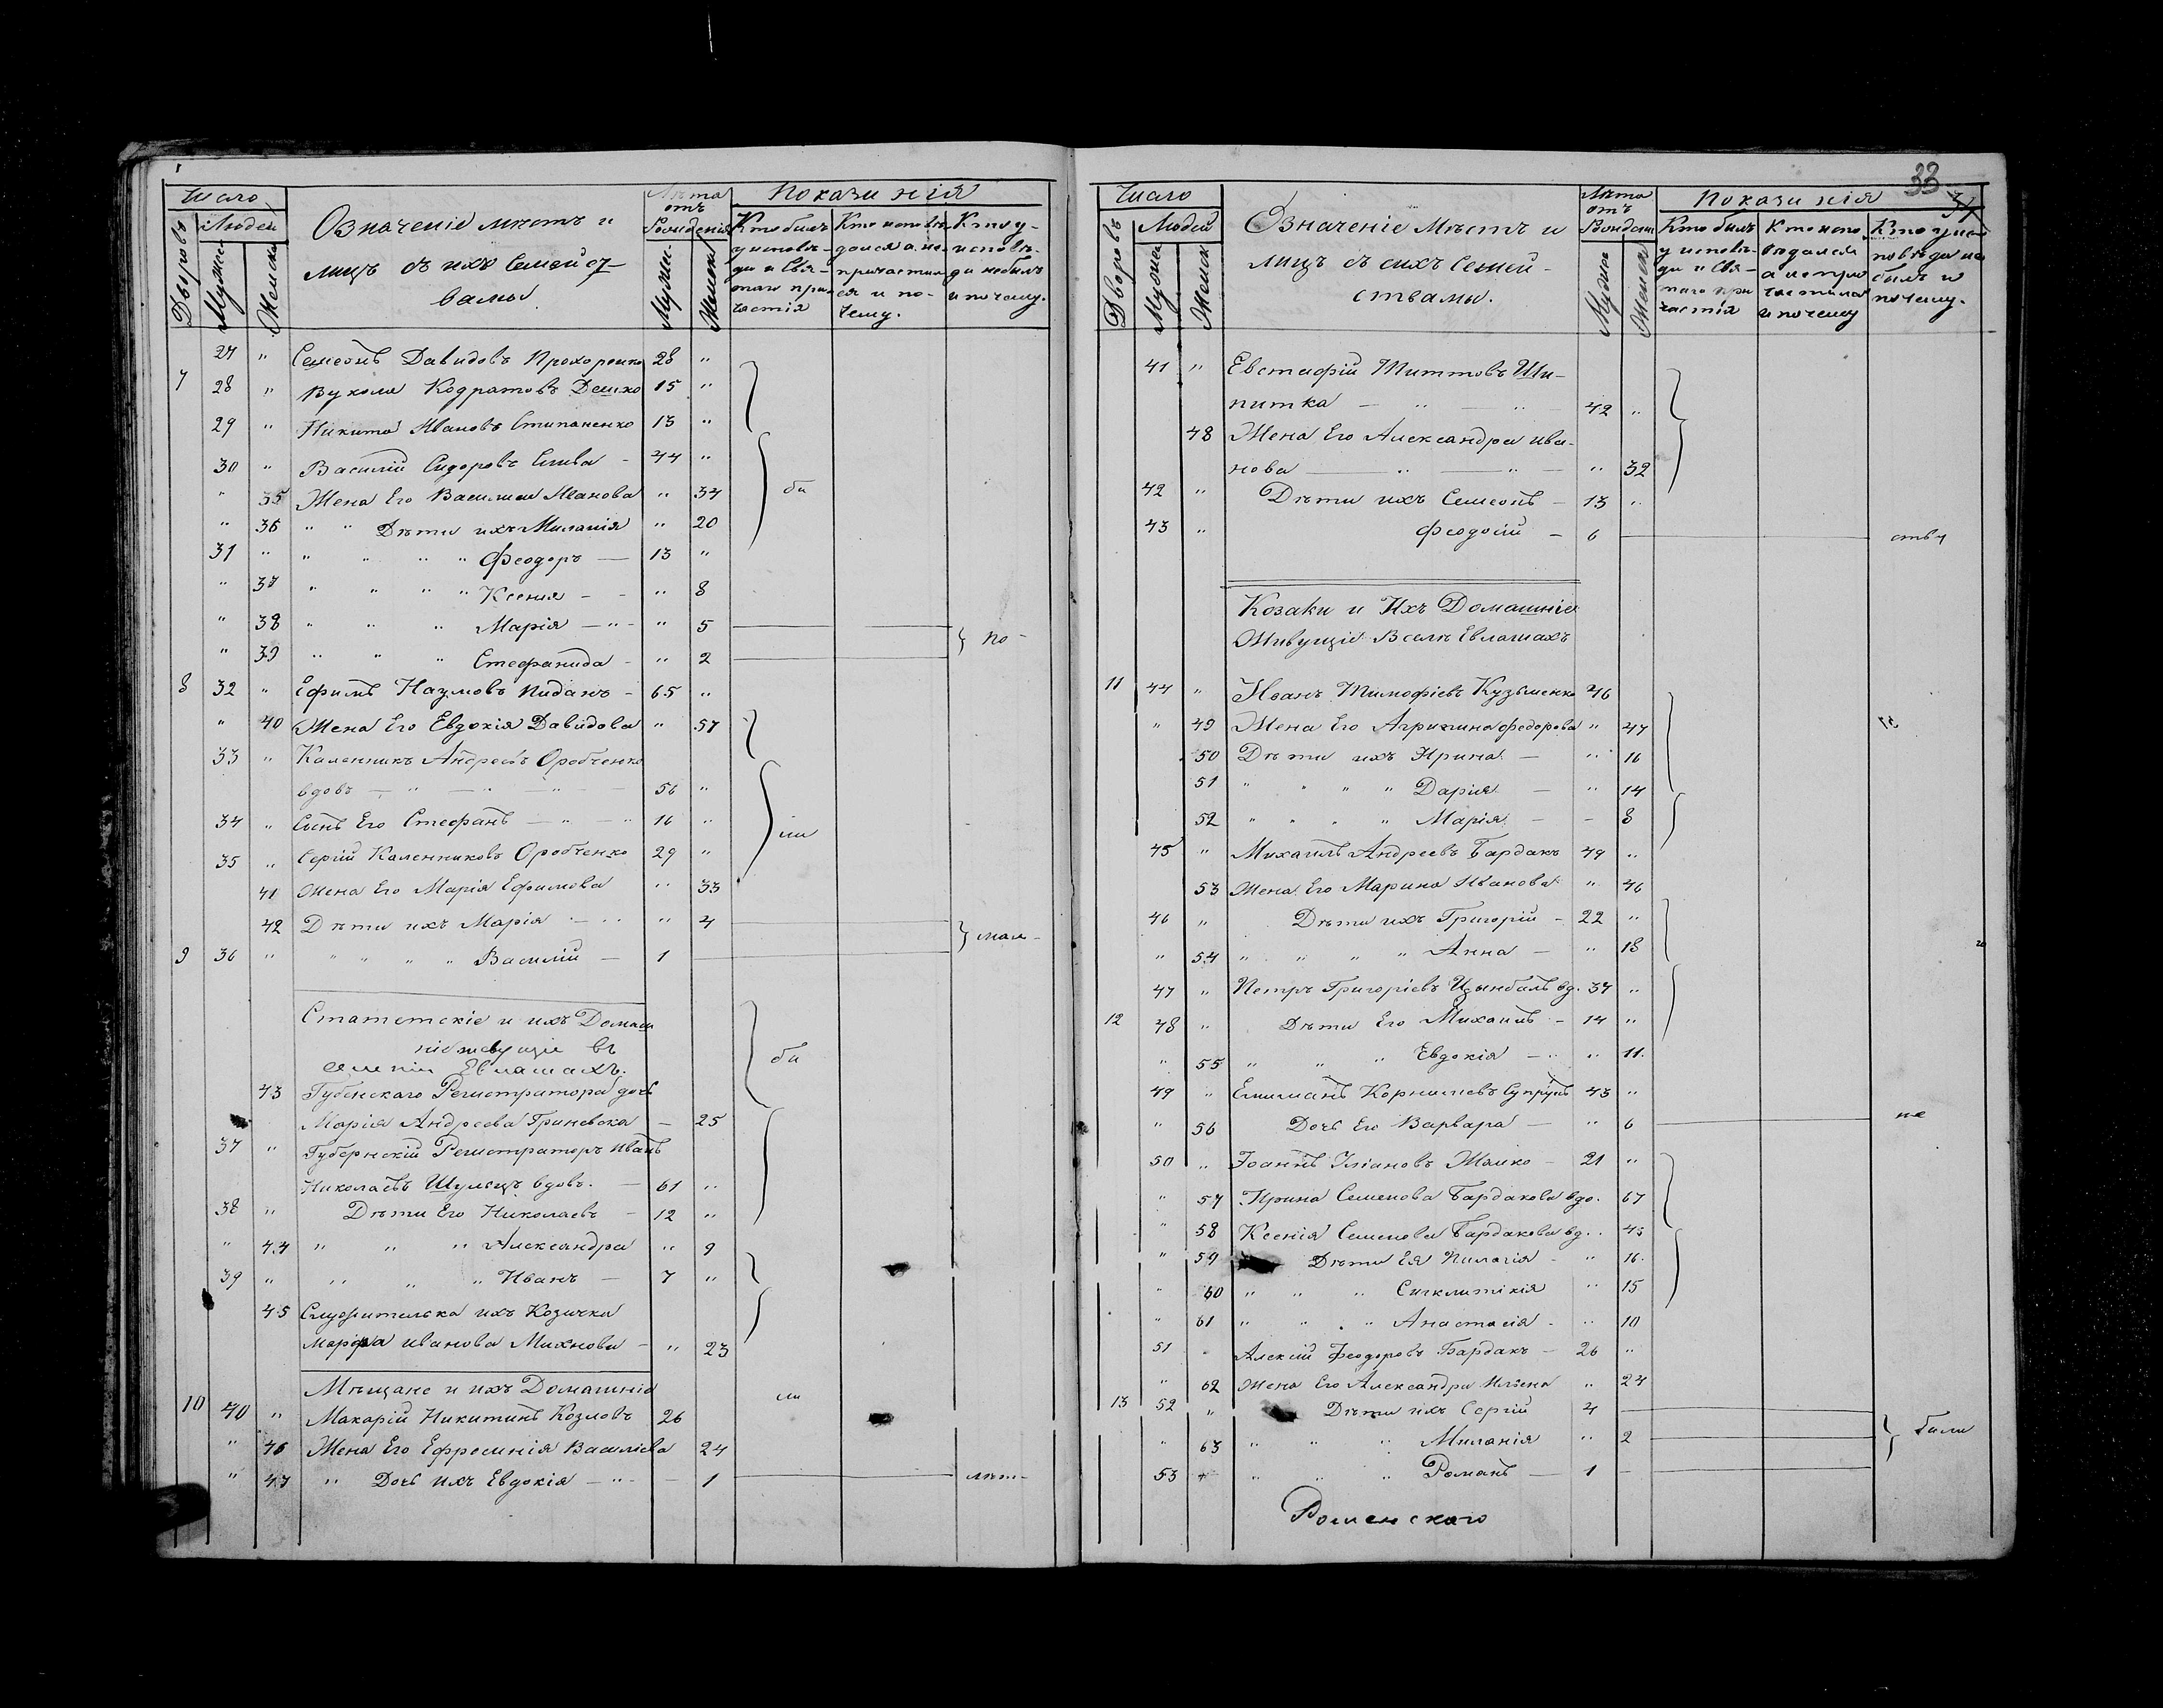 Число
Людей
Дворовъ
Мужеск
Женска
Означеніе мѣстъ и
лицъ съ ихъ семейст-
вамы
Лѣта
отъ
Рожденія
Мужес.
Женска
Показанія
Кто былъ
у исповѣ-
ди и свя-
таго при-
частія
Кто исповѣ
дался а не
причастил
ся и по-
чему.
Кто у
исповѣ-
ди небылъ
и почему.
27 " Семеонъ Давидовъ Прохоренко 28 "
7 28 " Вукола Кодратовъ Демко 15 "
29 " Никита Ивановъ Стипаненко 13 "
30 " Василій Сидоровъ Слива - 44 "
" 35 Жена Его Василиса Иванова " 34 би
" 36 " " Дѣти ихъ Миланія " 20
31 " " " " " Феодоръ — 13 "
" 37 " " " " Ксенія - - " 8
" 38 " " " Марія — " - " 5
по -
" 39 " " " Стефанида - " 2
8 32 " Ефимъ Наумовъ Пиданъ - 65 "
" 40 Жена Его Евдокія Давидова " 57
33 " Каленникъ Андреевъ Оробченко
вдовъ — " — " — " — 56 "
34 " Сынъ Его Стефанъ — " — " 16 "
35 " Сергій Каленниковъ Оробченко 29 "
41 Жена Его Марія Ефимова " 33
42 Дѣти ихъ Марія " — " " 4
мал -
9 36 " " " " " Василій — 1
Статетскіе и ихъ Домаш
ніе живущіе въ
Евлашахъ.
би
43 Губенскаго Регистратора дочь
Марія Андреева Гриневска — 25
37 " Губернскій Регистраторъ Иванъ
Николаевъ Шулецъ вдовъ. — 61 "
38 " Дѣти Его Николаевъ - 12 "
" 44 " " " Александра " 9
39 " " " " Иванъ — 7 "
45 Служителька ихъ Козачка
Марфа иванова Михнова - " 23
Мѣщане и ихъ Домашніе
ли
10 40 " Макарій Никитинъ Козловъ 26
" 46 Жена Его Ефросинія Василіева 24
" 47 " Дочь ихъ Евдокія — " - — 1 лѣт-
33
Число
Людей
Дворовъ
Мужеск
Женск
Означеніе Мѣстъ и
лицъ съ сихъ Семей-
ствамы.
Лѣта
отъ
Рожден
Мужес
Женск
Показанія
Кто былъ
у исповѣ-
ди и свя-
таго при
частія
Кто испо
вѣдался
а не при
частился
и почему
Кто у ис
повѣди не
былъ и
почему.
41 " Евстафій Титтовъ Ши-
питка — " — " 42 "
48 Жена Его Александра ива-
нова — " — " — " 32
42 " Дѣти ихъ Семеонъ — 13 "
43 " Феодосій — 6 ству
Козаки и Ихъ Домашніе
Живущіе Вселѣ Евлашахъ
11 44 " Иванъ Тимофіевъ Кузьменко 46
" 49 Жена Его Агрипина федорова " 47
50 Дѣти ихъ Ирина — " 16
51 " " " " Дарія — " 14
52 " " " " Марія — - 8
45 " Михаилъ Андреевъ Бардакъ 49 "
53 Жена Его Марина Иванова " 46
46 " Дѣти ихъ Григорій - 22 "
" 54 " " " " Анна — " 18
47 " Петръ Григоріевъ Цынбалъ вд. 37 "
12 48 " Дѣти Его Михаилъ - 14 "
" 55 " " " Евдокія — " " 11.
49 " Емилианъ Корниліевъ Супрунъ 43 "
" 56 Дочь Его Варвара — " 6 не
50 " Іоаннъ Іліановъ Жалко — 21 "
" 57 Ирина Семенова Бардакова вдо. 67
" 58 Ксенія Семенова Бардакова вд. " 45
" 59 Дѣти Ея Пилагія - " 16.
" 60 " " " Сигклитикія " 15
" 61 " " " Анастасія - " 10
51 " Алексій Феодоровъ Бардакъ — 26 "
" 62 Жена Его Александра " 24
13 52 " Дѣти ихъ Сергій 4
" 63 " " " Миланія " 2
били
53 " " " Романъ — 1 -
Роменскаго